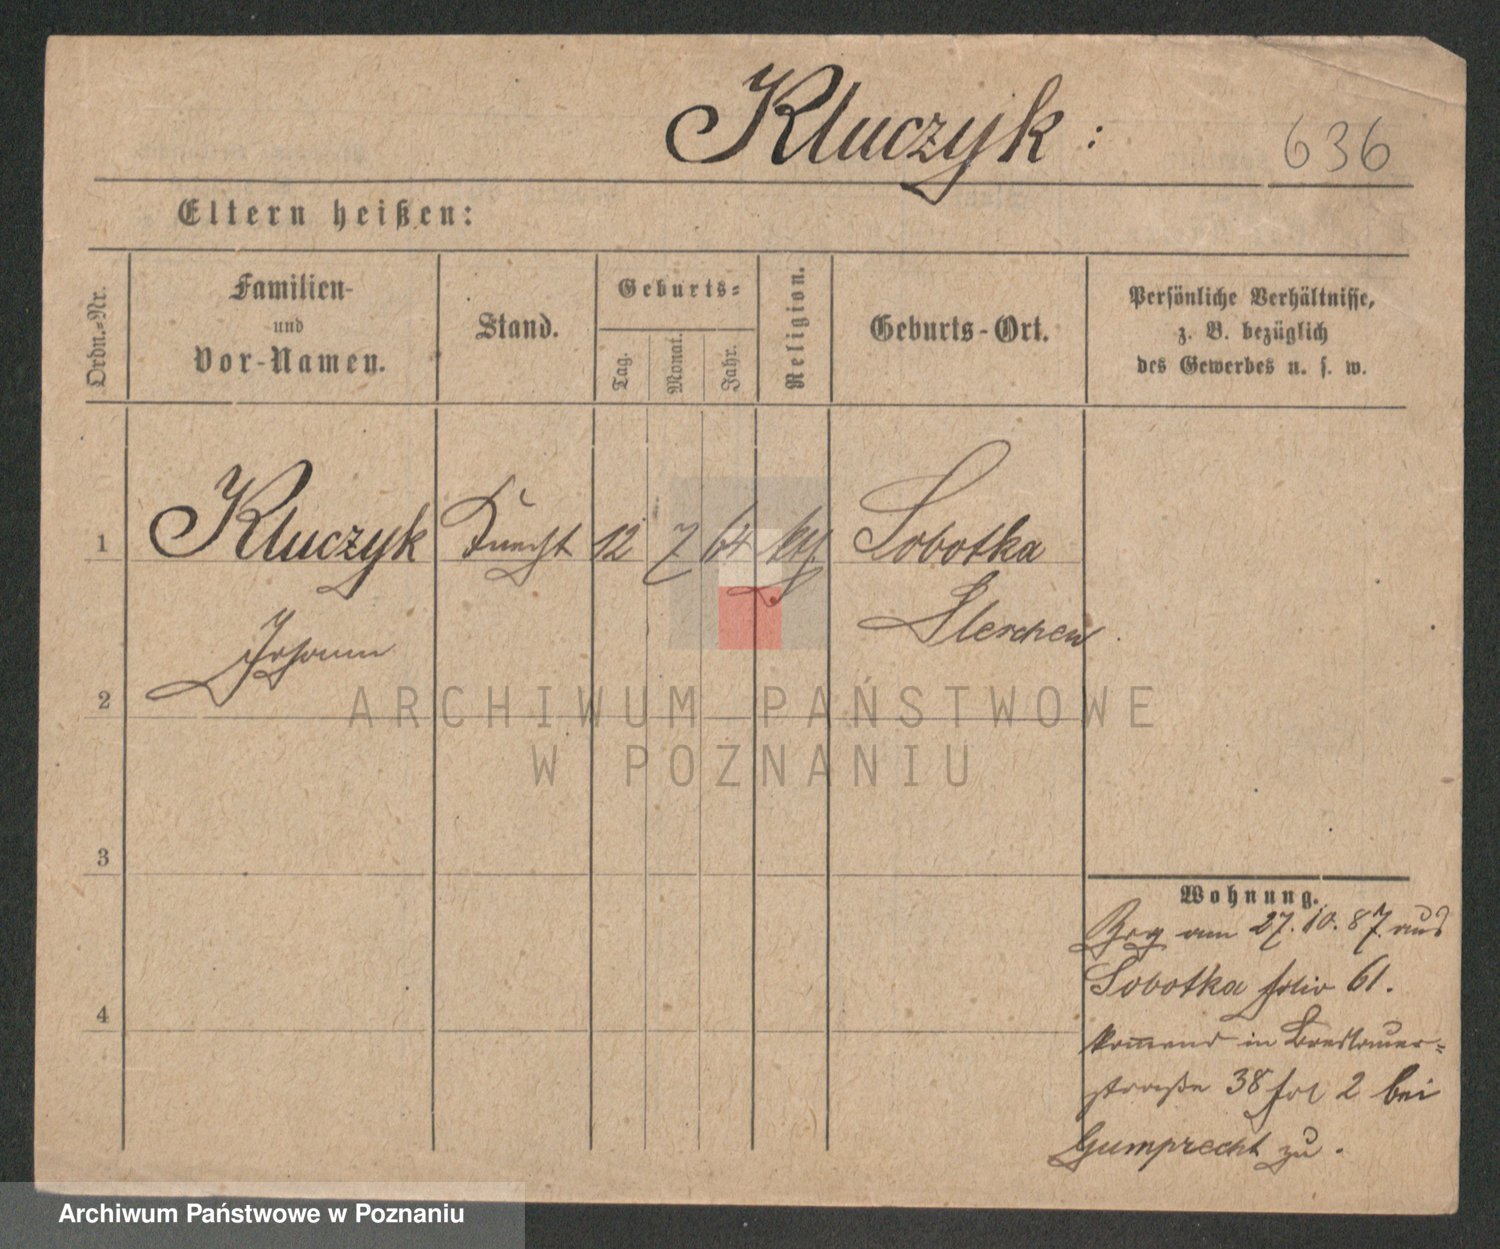 Kluczyk :
636
Eltern heißen:
Ordn.-Nr.
Familien-
und
Vor-Namen.
Stand.
Geburts-
Tag.
Monat.
Jahr.
Religion.
Geburts-Ort.
Persönliche Verhältnisse,
z. B. bezüglich
des Gewerbes u. s. w.
1 Kluczyk Knecht 12 7 64 kth Sobotka
Johann Pleschen
2
3
4
ARCHIWUM PAŃSTWOWE
W POZNANIU
Wohnung.
Zog am 27. 10. 87. aus
Sobotka folio 61.
kommend in Breslauer-
straße 38 fol 2 bei
Gumprecht zu.
Archiwum Państwowe w Poznaniu